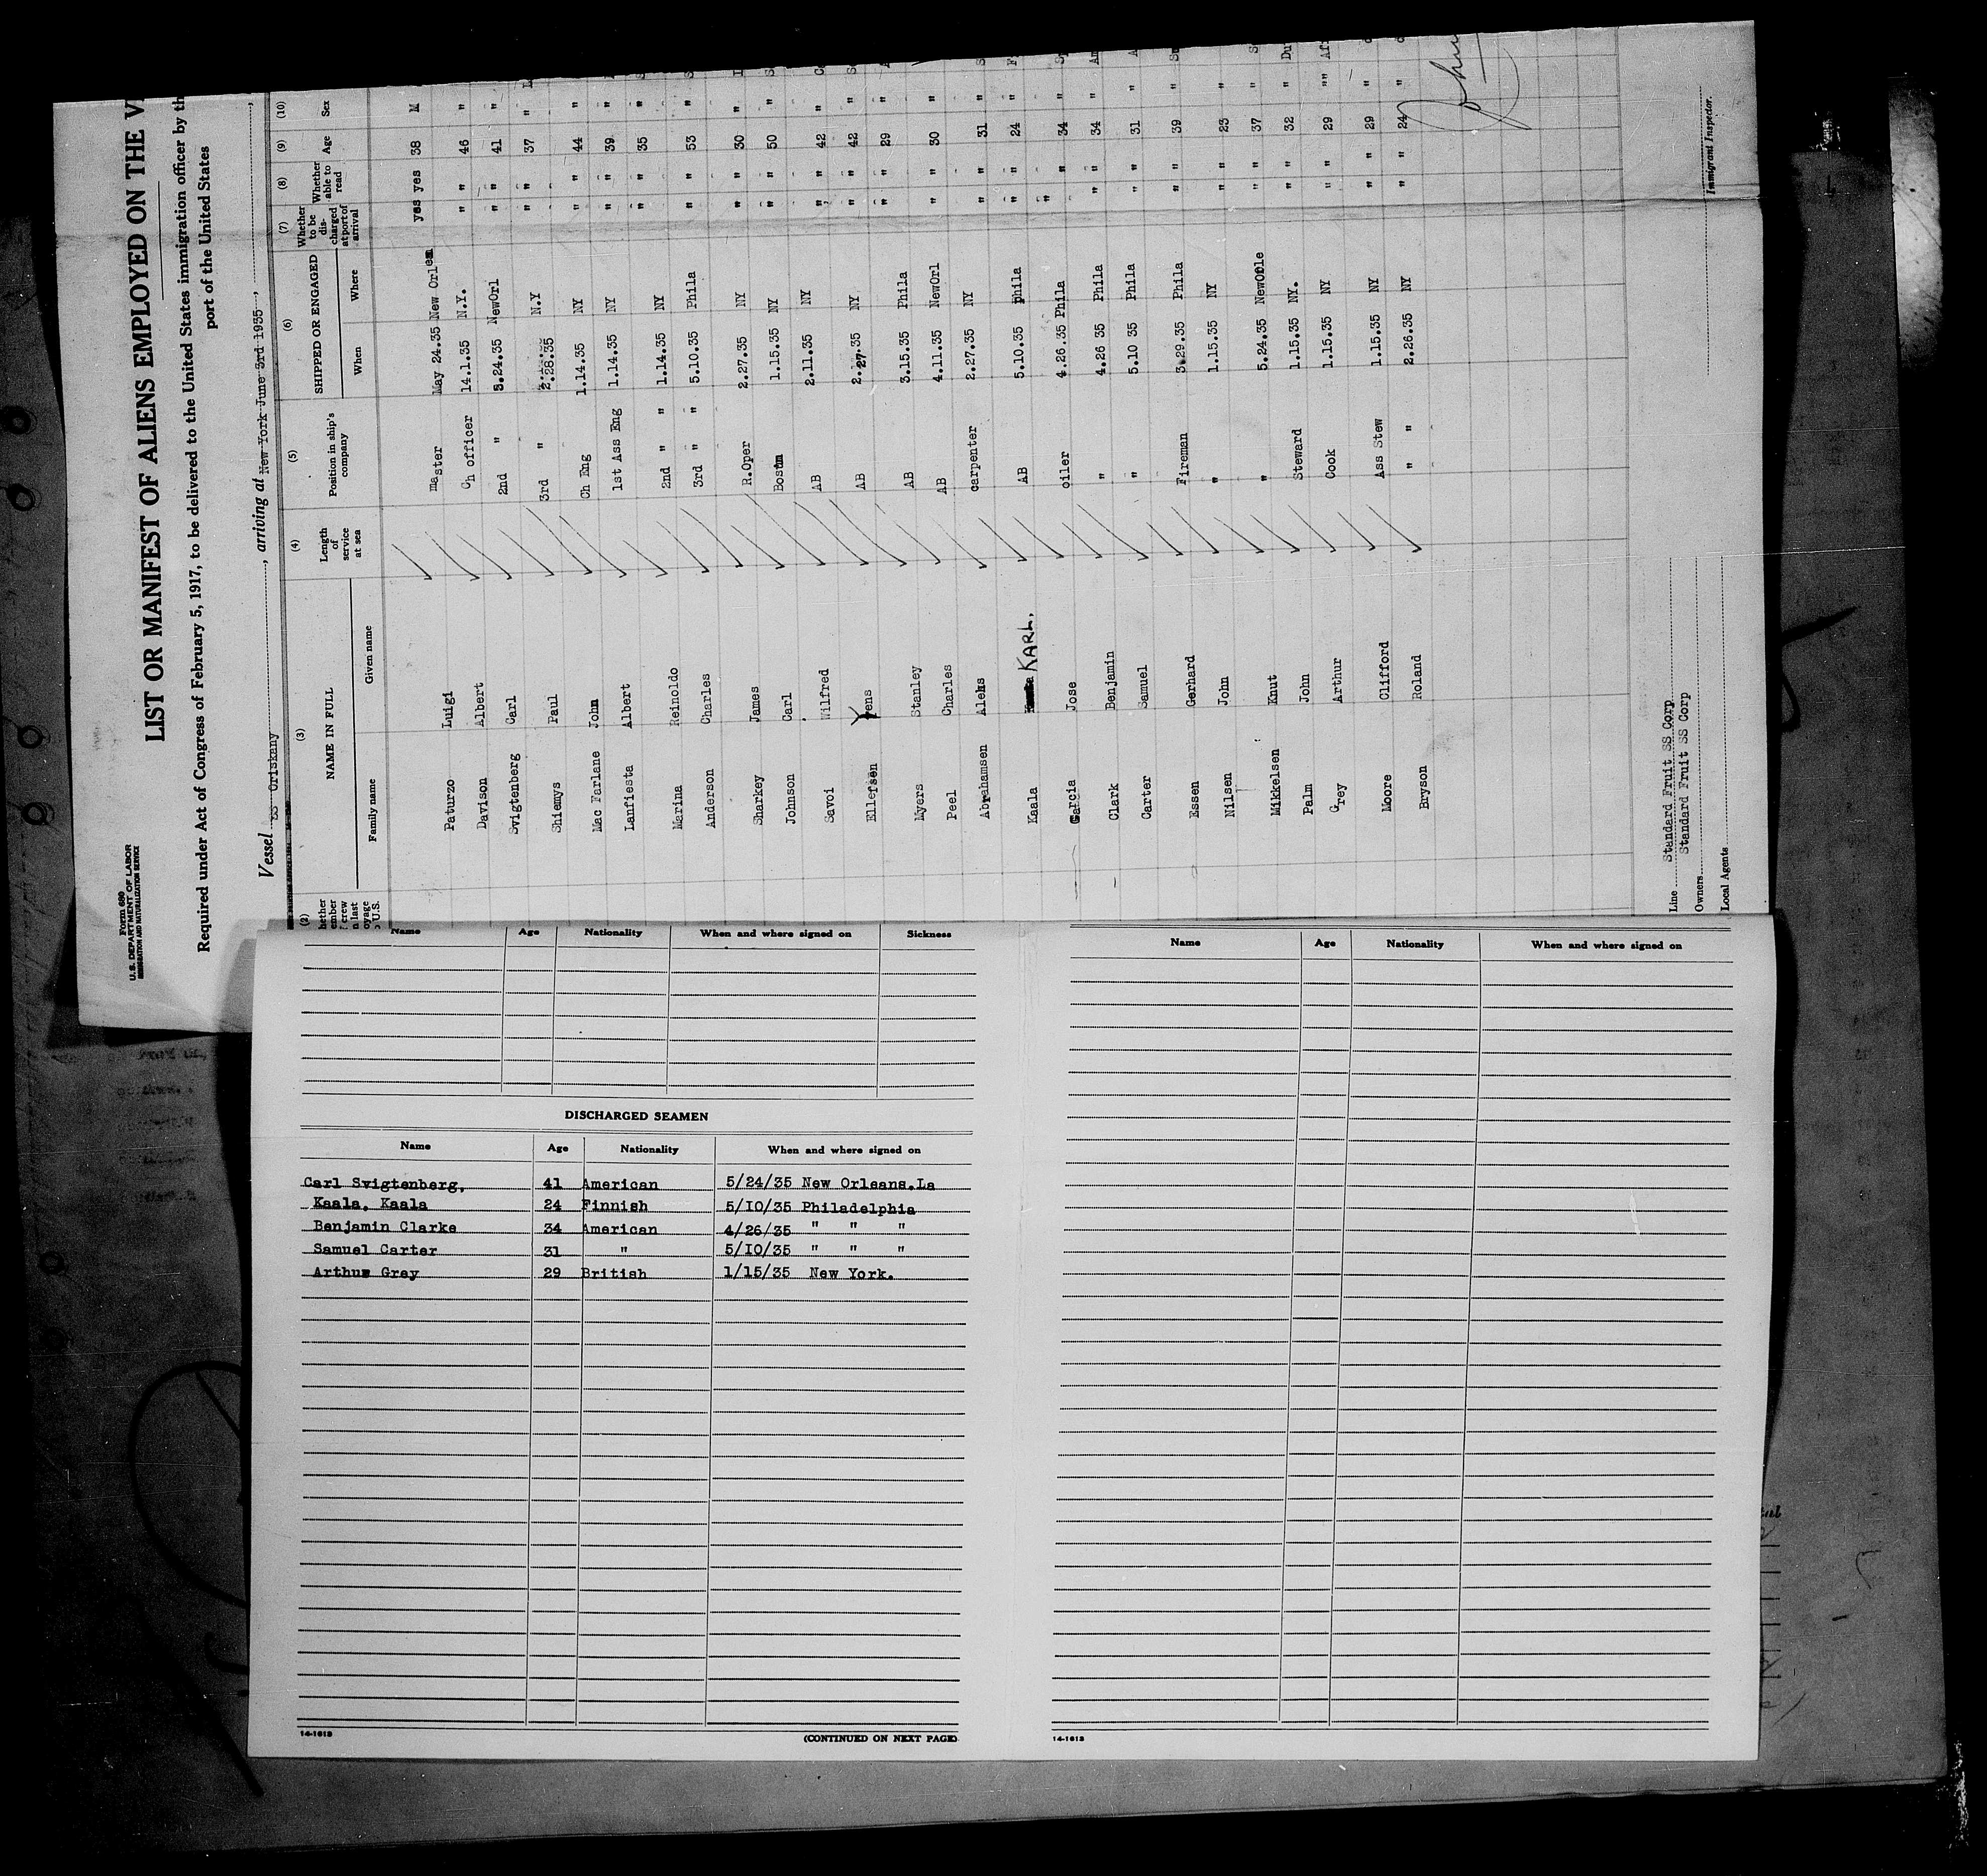 Form 680
U. S. DEPARTMENT OF LABOR
IMMIGRATION AND NATURALIZATION SERVICE
LIST OR MANIFEST OF ALIENS EMPLOYED ON THE V
Required under Act of Congress of February 5, 1917, to be delivered to the United States immigration officer by th
port of the United States
Vessel SS Oriskany, arriving at New York June 3rd 1935,
(2) (3) (4) (5) (6) (7) (8) (9) (10)
NAME IN FULL Length of service at sea Position in ship's company SHIPPED OR ENGAGED Whether to be discharged at port of arrival Whether able to read Age Sex
Family name Given name When Where
Paturzo Luigi master May 24.35 New Orlean yes yes 38 M
Davison Albert Ch officer 14.1.35 N.Y. " " 46 "
Svigtenberg Carl 2nd " 5.24.35 NewOrl " " 41 "
Shiemys Paul 3rd " 2.28.35 N.Y " " 37 "
Mac Farlane John Ch Eng 1.14.35 NY " " 44 "
Lanfiesta Albert 1st Ass Eng 1.14.35 NY " " 39 "
Marina Reinoldo 2nd " " 1.14.35 NY " " 35 "
Anderson Charles 3rd " " 5.10.35 Phila " " 53 "
Sharkey James R.Oper 2.27.35 NY " " 30 "
Johnson Carl Bostm 1.15.35 NY " " 50 "
Savoi Wilfred AB 2.11.35 NY " " 42 "
Ellefsen Yens AB 2.27.35 NY " " 42 "
Myers Stanley AB 3.15.35 Phila " " 29 "
Peel Charles AB 4.11.35 NewOrl " " 30 "
Abrahamsen Aleks carpenter 2.27.35 NY " " 31 "
Kaala KARL. AB 5.10.35 phila " " 24 "
Garcia Jose oiler 4.26.35 Phila " " 34 "
Clark Benjamin " 4.26 35 Phila " " 34 "
Carter Samuel " 5.10 35 Phila " " 31 "
Essen Gerhard Fireman 3.29.35 Phila " " 39 "
Nilsen John " 1.15.35 NY " " 23 "
Mikkelsen Knut " 5.24.35 NewOrle " " 37 "
Palm John Steward 1.15.35 NY. " " 32 "
Grey Arthur Cook 1.15.35 NY " " 29 "
Moore Clifford Ass Stew 1.15.35 NY " " 29 "
Bryson Roland " " 2.26.35 NY " " 24 "
Line Standard Fruit SS Corp
Owners Standard Fruit SS Corp
Local Agents
Immigrant Inspector.
Name Age Nationality When and where signed on Sickness
DISCHARGED SEAMEN
Name Age Nationality When and where signed on
Carl Svigtenberg, 41 American 5/24/35 New Orleans.La
Kaala, Kaala 24 Finnish 5/10/35 Philadelphia
Benjamin Clarke 34 American 4/26/35 " " "
Samuel Carter 31 " 5/10/35 " " "
Arthur Grey 29 British 1/15/35 New York.
14-1613
(CONTINUED ON NEXT PAGE)
Name Age Nationality When and where signed on
14-1613